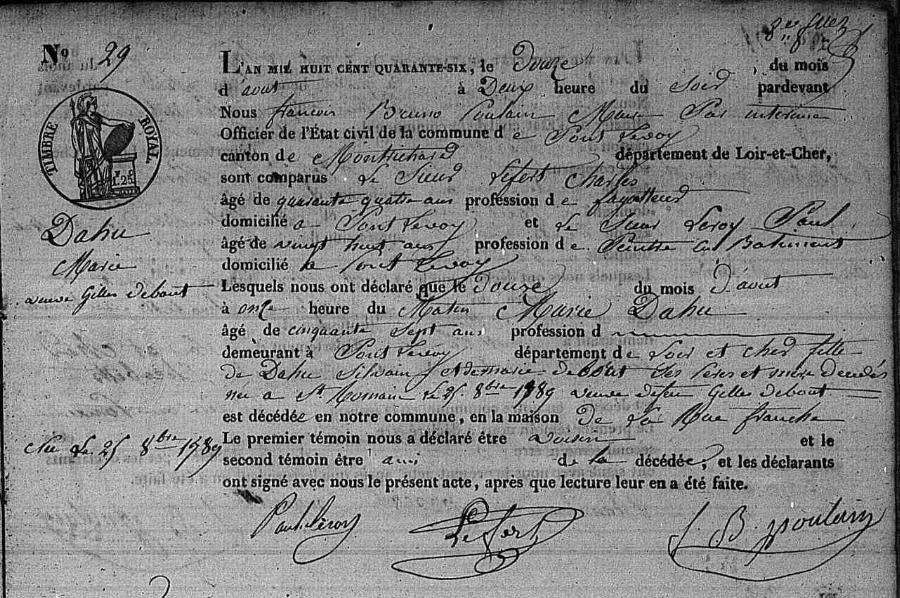 No 29
L'AN MIL HUIT CENT QUARANTE-SIX, le Douze du mois
d'aout à Deux heure du Soir pardevant
Nous francois Bruno Poulain Maire Par interime
Officier de l'État civil de la commune de Pont Levoy
canton de Montrichard département de Loir-et-Cher,
sont comparus Le Sieur Lefert Charles
âgé de quarante quatre ans profession de
domicilié a Pont Levoy et Le Sieur Leroy Paul
âgé de vingt huit ans profession de Peintre en Batiment
domicilié a Pont Levoy
Lesquels nous ont déclaré que le Douze du mois D'aout
à onze heure du Matin Marie Dahu
âgé de cinquante Sept ans profession d
demeurant à Pont Levoy département de Loir et cher fille
de Dahu Silvain et de marie debout Ses pères et mère Decedés
née a St Romain le 25 8bre 1789 veuve defeu Gilles debout
est décédée en notre commune, en la maison de La Rue franche
Le premier témoin nous a déclaré être voisin et le
second témoin être ami de la décédée, et les déclarants
ont signé avec nous le présent acte, après que lecture leur en a été faite.
TIMBRE ROYAL
Dahu
Marie
veuve Gilles debout
Née Le 25 8bre 1789
Paul Leroy
Lefert
f B poulain